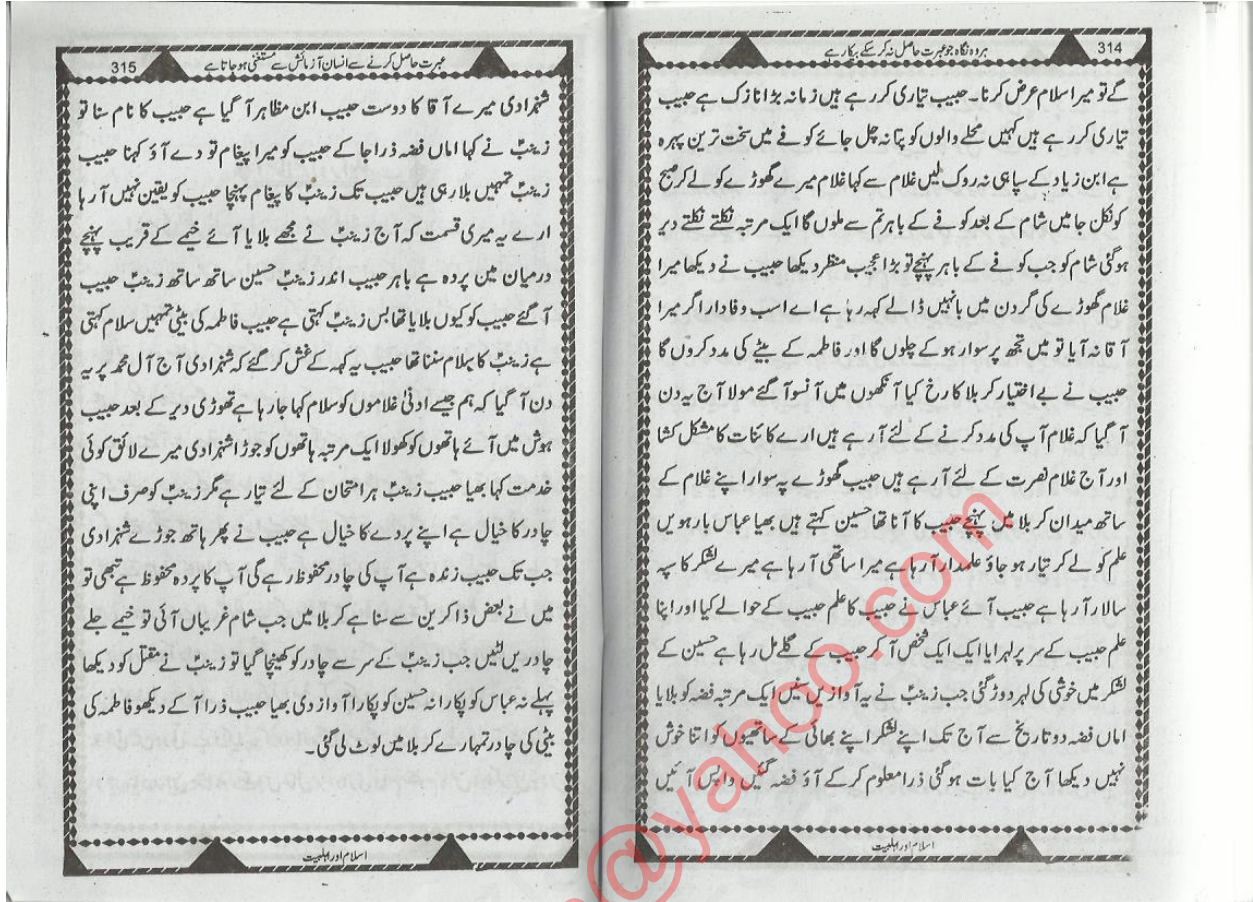 ہر وہ نگاہ جو عبرت حاصل نہ کر سکے بیکار ہے
314
گے تو میرا سلام عرض کرنا۔ حبیب تیاری کر رہے ہیں زمانہ بڑا نازک ہے حبیب
تیاری کر رہے ہیں کہیں محلے والوں کو پتا نہ چل جائے کوفے میں سخت ترین پہرہ
ہے ابن زیاد کے سپاہی نہ روک لیں غلام سے کہا غلام میرے گھوڑے کو لے کر صبح
کو نکل جا میں شام کے بعد کوفے کے باہر تم سے ملوں گا ایک مرتبہ نکلتے نکلتے دیر
ہو گئی شام کو جب کوفے کے باہر پہنچے تو بڑا عجیب منظر دیکھا حبیب نے دیکھا میرا
غلام گھوڑے کی گردن میں بانہیں ڈالے کہہ رہا ہے اے اسب وفادار اگر میرا
آقا نہ آیا تو میں تجھ پر سوار ہو کے چلوں گا اور فاطمہ کے بیٹے کی مدد کروں گا
حبیب نے بے اختیار کربلا کا رخ کیا آنکھوں میں آنسو آ گئے مولا آج یہ دن
آ گیا کہ غلام آپ کی مدد کرنے کے لئے آ رہے ہیں ارے کائنات کا مشکل کشا
اور آج غلام نصرت کے لئے آ رہے ہیں حبیب گھوڑے پہ سوار اپنے غلام کے
ساتھ میدان کربلا میں پہنچے حبیب کا آنا تھا حسین کہتے ہیں بھیا عباس بارہویں
علم کو لے کر تیار ہو جاؤ علمدار آ رہا ہے میرا ساتھی آ رہا ہے میرے لشکر کا سپہ
سالار آ رہا ہے حبیب آئے عباس نے حبیب کا علم حبیب کے حوالے کیا اور اپنا
علم حبیب کے سر پر لہرایا ایک ایک شخص آ کر حبیب کے گلے مل رہا ہے حسین کے
لشکر میں خوشی کی لہر دوڑ گئی جب زینبؑ نے یہ آوازیں سنیں ایک مرتبہ فضہ کو بلایا
اماں فضہ دو تاریخ سے آج تک اپنے لشکر اپنے بھائی کے ساتھیوں کو اتنا خوش
نہیں دیکھا آج کیا بات ہو گئی ذرا معلوم کر کے آؤ فضہ گئیں واپس آئیں
اسلام اور اہلبیت
عبرت حاصل کرنے سے انسان آزمائش سے مستغنی ہو جاتا ہے
315
شہزادی میرے آقا کا دوست حبیب ابن مظاہر آ گیا ہے حبیب کا نام سنا تو
زینبؑ نے کہا اماں فضہ ذرا جا کے حبیب کو میرا پیغام تو دے آؤ کہنا حبیب
زینبؑ تمہیں بلا رہی ہیں حبیب تک زینبؑ کا پیغام پہنچا حبیب کو یقین نہیں آ رہا
ارے یہ میری قسمت کہ آج زینبؑ نے مجھے بلایا آئے خیمے کے قریب پہنچے
درمیان مین پردہ ہے باہر حبیب اندر زینبؑ حسین ساتھ ساتھ زینبؑ حبیب
آ گئے حبیب کو کیوں بلایا تھا بس زینبؑ کہتی ہے حبیب فاطمہ کی بیٹی تمہیں سلام کہتی
ہے زینبؑ کا سلام سننا تھا حبیب یہ کہہ کے غش کر گئے کہ شہزادی آج آل محمدؐ پر یہ
دن آ گیا کہ ہم جیسے ادنیٰ غلاموں کو سلام کہا جا رہا ہے تھوڑی دیر کے بعد حبیب
ہوش میں آئے ہاتھوں کو کھولا ایک مرتبہ ہاتھوں کو جوڑا شہزادی میرے لائق کوئی
خدمت کہا بھیا حبیب زینبؑ ہر امتحان کے لئے تیار ہے مگر زینبؑ کو صرف اپنی
چادر کا خیال ہے اپنے پردے کا خیال ہے حبیب نے پھر ہاتھ جوڑے شہزادی
جب تک حبیب زندہ ہے آپ کی چادر محفوظ رہے گی آپ کا پردہ محفوظ ہے تبھی تو
میں نے بعض ذاکرین سے سنا ہے کربلا میں جب شام غریباں آئی تو خیمے جلے
چادریں لٹیں جب زینبؑ کے سر سے چادر کو کھینچا گیا تو زینبؑ نے مقتل کو دیکھا
پہلے نہ عباس کو پکارا نہ حسین کو پکارا آواز دی بھیا حبیب ذرا آ کے دیکھو فاطمہ کی
بیٹی کی چادر تمہارے کربلا میں لوٹ لی گئی۔
اسلام اور اہلبیت
@yahoo.com